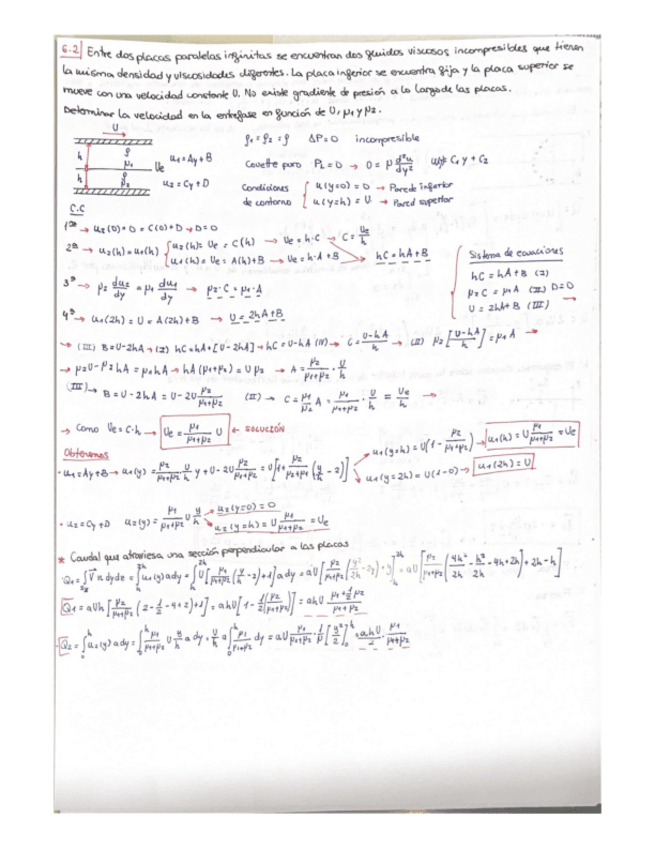 6.2 Entre dos placas paralelas infinitas se encuentran dos fluidos viscosos, incompresibles que tienen
la misma densidad y viscosidades diferentes. La placa inferior se encuentra fija y la placa superior se
mueve con una velocidad constante U. No existe gradiente de presión a lo largo de las placas.
Determinar la velocidad en la entrefase en función de U, μ1 y μ2.
U
ρ1 = ρ2 = ρ ΔP=0 incompresible
h ρ μ1 Ue u1 = Ay+B
h ρ μ2 u2 = Cy+D
Couette puro PL=0 → 0 = μ d²u/dy² C1 y + C2
Condiciones de contorno { u(y=0) = 0 → Pared inferior
u(y=h) = U → Pared superior
C.C
1ª → u2(0) = 0 = C(0)+D → D=0
2ª → u2(h) = u1(h) { u2(h) = Ue = C(h) → Ue = h·C → C = Ue/h
u1(h) = Ue = A(h)+B → Ue = h·A+B → hC = hA+B
3ª → μ2 du2/dy = μ1 du1/dy → μ2·C = μ1·A
4ª → u1(2h) = U = A(2h)+B → U = 2hA+B
Sistema de ecuaciones
hC = hA+B (I)
μ2C = μ1A (II) D=0
U = 2hA+B (III) →
→ (III) B = U-2hA → (I) hC = hA+[U-2hA] → hC = U-hA (IV) → C = U-hA/h → (II) μ2[U-hA/h] = μ1A →
→ μ2U - μ2hA = μ1hA → hA(μ1+μ2) = Uμ2 → A = μ2/μ1+μ2 · U/h
(III) → B = U-2hA = U-2U μ2/μ1+μ2 (II) → C = μ1/μ2 A = μ1/μ1+μ2 · U/h = Ue/h →
→ Como Ue = C·h → Ue = μ1/μ1+μ2 U ← SOLUCIÓN
Obtenemos
· u1 = Ay+B → u1(y) = μ2/μ1+μ2 U/h y + U-2U μ2/μ1+μ2 = U[1+ μ2/μ1+μ2 (y/h - 2)]
u1(y=h) = U(1- μ2/μ1+μ2) → u1(h) = U μ1/μ1+μ2 = Ue
u1(y=2h) = U(1-0) → u1(2h) = U
· u2 = Cy+D u2(y) = μ1/μ1+μ2 U y/h
u2(y=0) = 0
u2(y=h) = U μ1/μ1+μ2 = Ue
* Caudal que atraviesa una sección perpendicular a las placas
Q1 = ∫ V n dydz = ∫ u1(y) a dy = ∫ U[μ2/μ1+μ2 (y/h - 2)+1] a dy = aU[μ2/μ1+μ2 (y²/2h - 2y) + y] = aU[μ2/μ1+μ2 (4h²/2h - h²/2h - 4h+2h) + 2h-h]
Q1 = aUh[μ2/μ1+μ2 (2 - 1/2 - 4+2)+1] = ahU[1 - 1/2(μ2/μ1+μ2)] = ahU μ1+1/2μ2/μ1+μ2
Q2 = ∫ u2(y) a dy = ∫ μ1/μ1+μ2 U y/h a dy = U/h a ∫ μ1/μ1+μ2 dy = aU μ1/μ1+μ2 · 1/h [y²/2] = ahU/2 · μ1/μ1+μ2